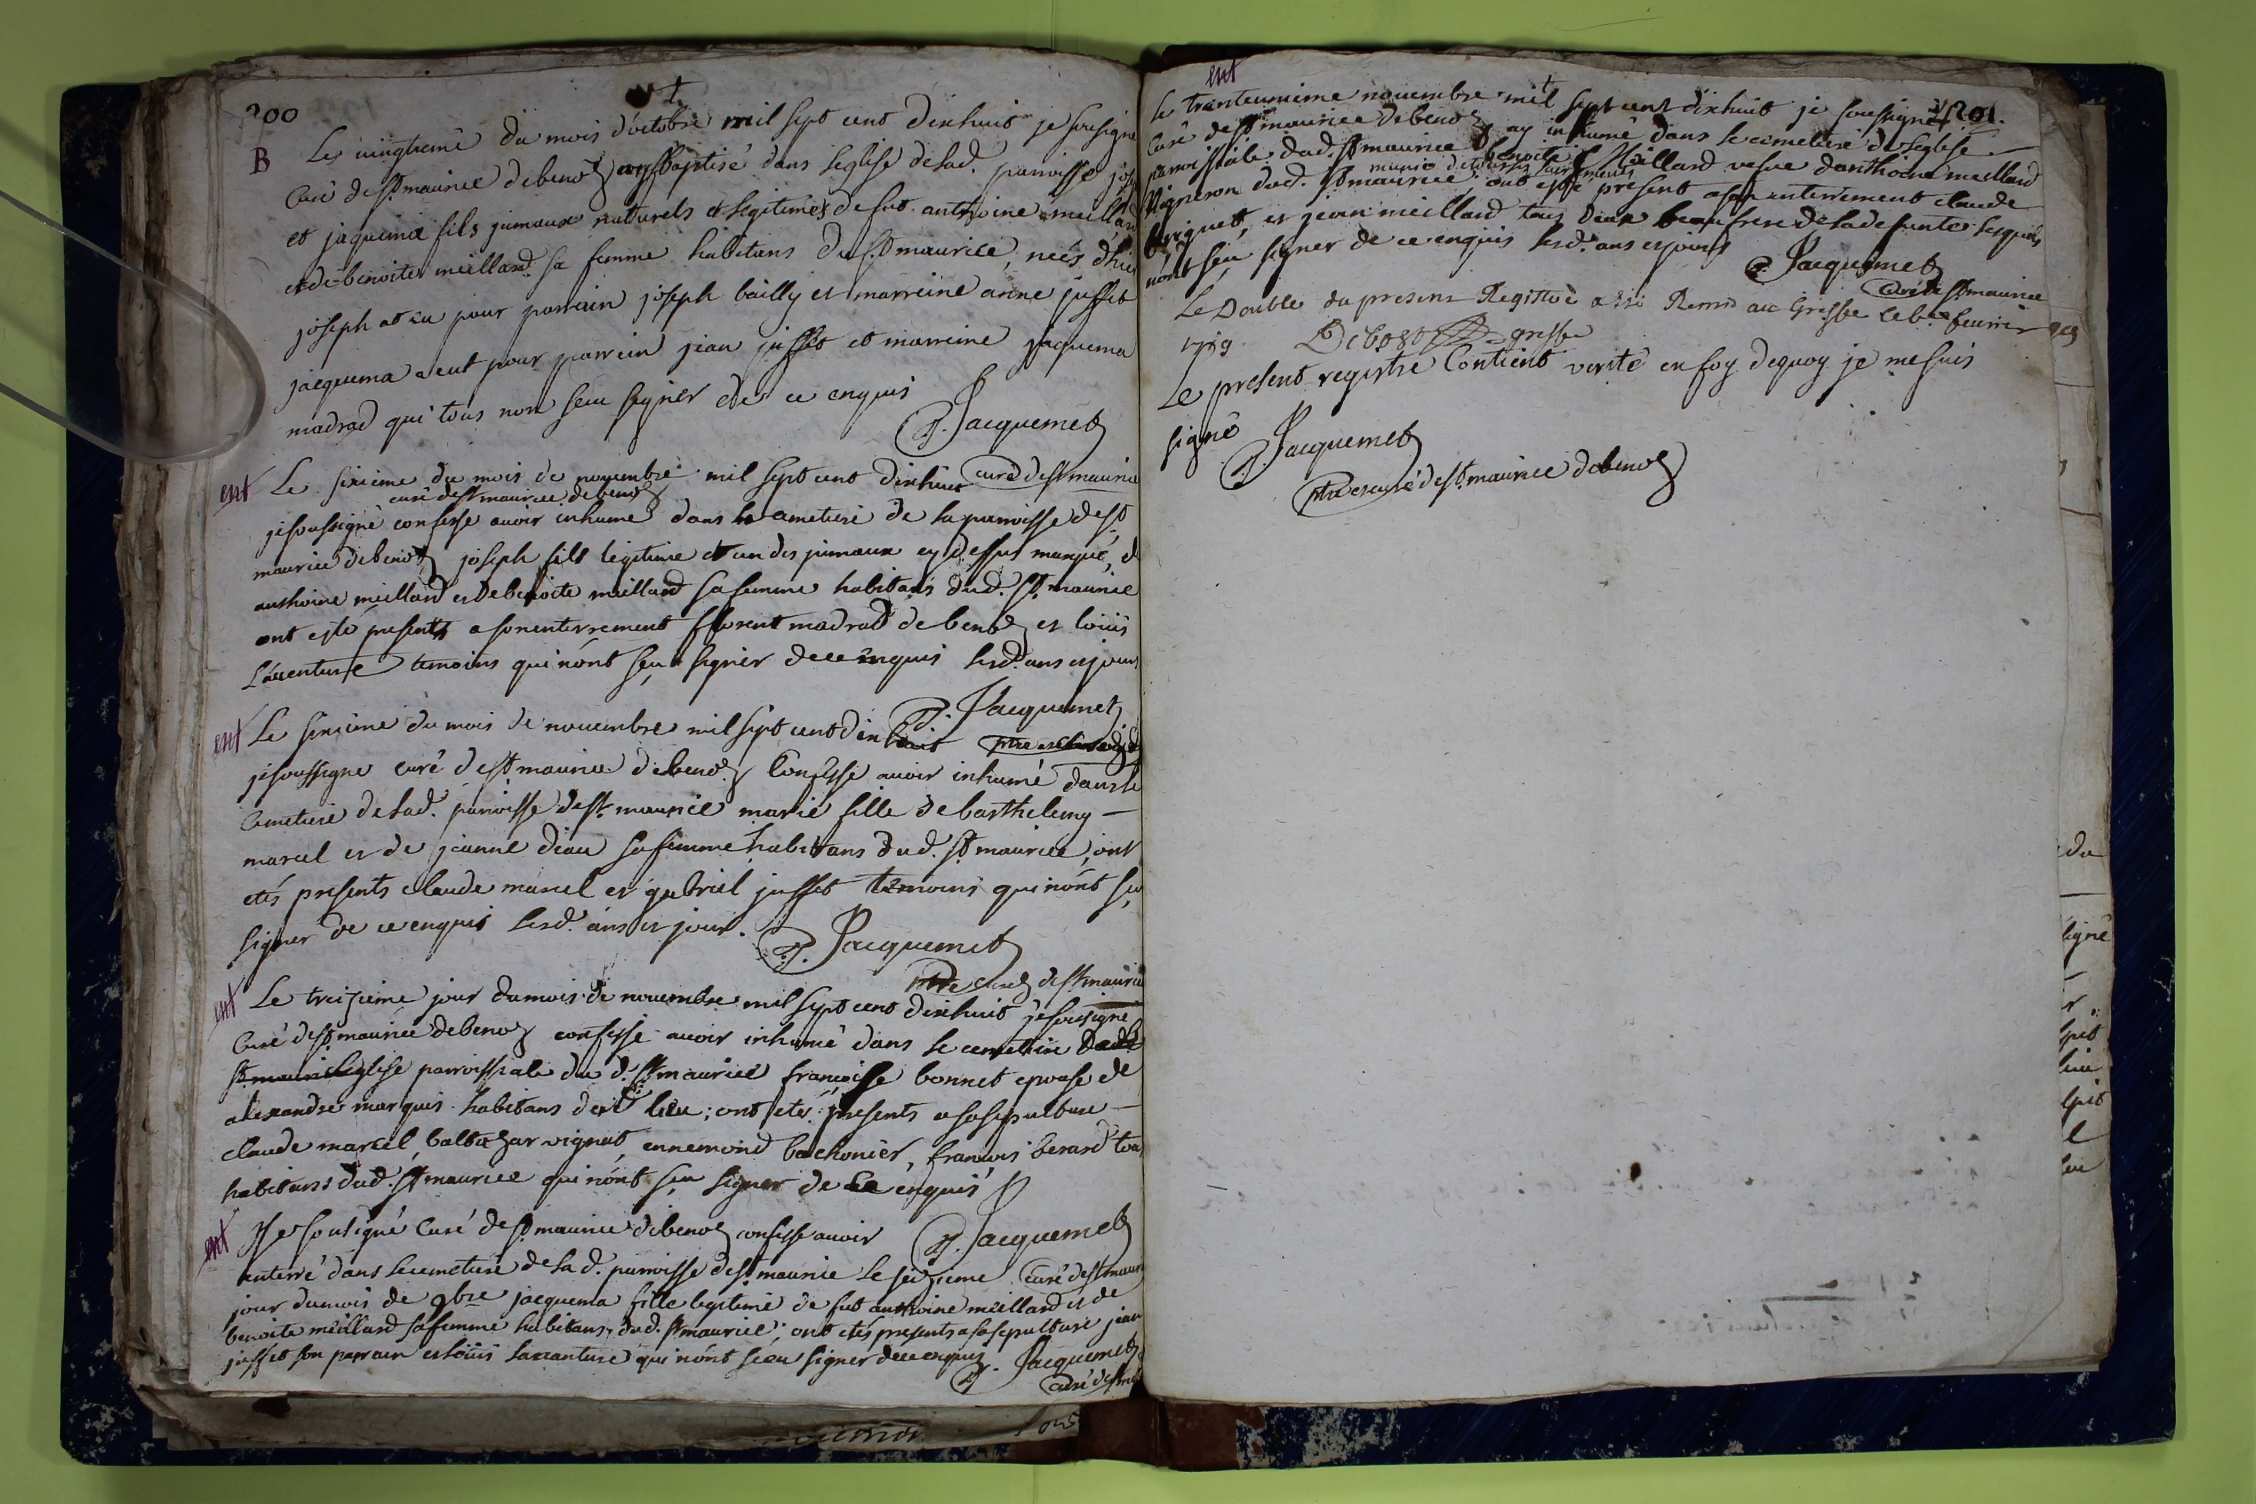 200
B
Le vingtieme du mois d'octobre mil sept cent dixhuit je sousigné
Curé de St maurice debenoz ay baptisé dans leglise delad. parroisse joseph
et jaquema fils jumaux naturels et legitimes de fut anthoine meilland
et de benoite meilland sa femme habitans du St maurice, nées d'hier
joseph at eu pour parrain joseph bailly et marreine anne jusset
jacquema a eut pour parrein jean jusset et marreine jaquema
madrad qui tous nont sceu signer de ce enquis
P. Jacquemet
curé de St maurice
ent
Le sixieme du mois de novembre mil sept cent dixhuit
curé de St maurice debenoz
jesoussigné confesse avoir inhumé dans le cimetiere de la parroisse de St
maurice debenoz joseph fils legitime et un des jumaux cy dessus marqué, d
anthoine meilland et de benoite meilland sa femme habitans dud. St maurice
ont esté presents a son enterrement florent madrad de benoz et loüis
Laventure temoins qui n'ont sçeu signer de ce enquis lesd. ans et jours
P. Jacquemet
ent
Le sixieme du mois de novembre mil sept cent dixhuit
jesoussigne curé de St maurice debenoz Confesse avoir inhumé dans le
Cimetiere delad. parroisse de St maurice marie fille de barthelemy
marcel et de jeanne diau sa femme habitans dud. St maurice, ont
etés presents claude marcel et gabriel jusset temoins qui n'ont sçu
signer de ce enquis lesd. ans et jour.
P. Jacquemet
ptre curé de St maurice
ent
Le treizieme jour dumois de novembre mil sept cent dixhuit je sousigné
Curé de St maurice debenoz confesse avoir inhumé dans le cemetiere
St maurice leglise parroissiale du d. St maurice francoisse bonnet epouse de
alexandre marquis habitans dud. lieu; ont etés presents a sa sepulture
claude marcel, baltazar vignat, ennemond bachonier, francois berard tous
habitans dud. St maurice qui n'ont sçu signer de ce enquis
P. Jacquemet
curé de St maur
ent
Je sousigné Curé de St maurice debenoz confesse avoir
enterré dans le cemetiere de la d. parroisse de St maurice le seizieme
jour dumois de 9bre jacquema fille legitime de fut anthoine meilland et de
benoite meilland sa femme habitans dud. St maurice; ont etés presents a sa sepulture jean
jusset son parrain et loüis lavanture qui n'ont sceu signer de ce enquis
P. Jacquemet
curé de St m
ent
201.
Le trenteunieme novembre mil sept cent dixhuit je sousigné
Curé de St maurice debenoz ay inhumé dans le cimetiere de leglise
parroissiale dud. St maurice benoite Meilland vefve danthoine meilland
munie de tous ses sacrements
Vigneron dud. St maurice, ont esté present a son enterrement claude
et jean meilland tous deux beaufrere de la defunte lesquels
nont sçeu signer de ce enquis lesd. ans et jours
P. Jacquemet
Curé de St maurice
Le Double du present Registre a esté Remis au Greffe le fevrier
1719. greffe
Le present registre Contient verité en foy dequoy je me suis
signé
P. Jacquemet
ptre et curé de St maurice debenoz
du
signé